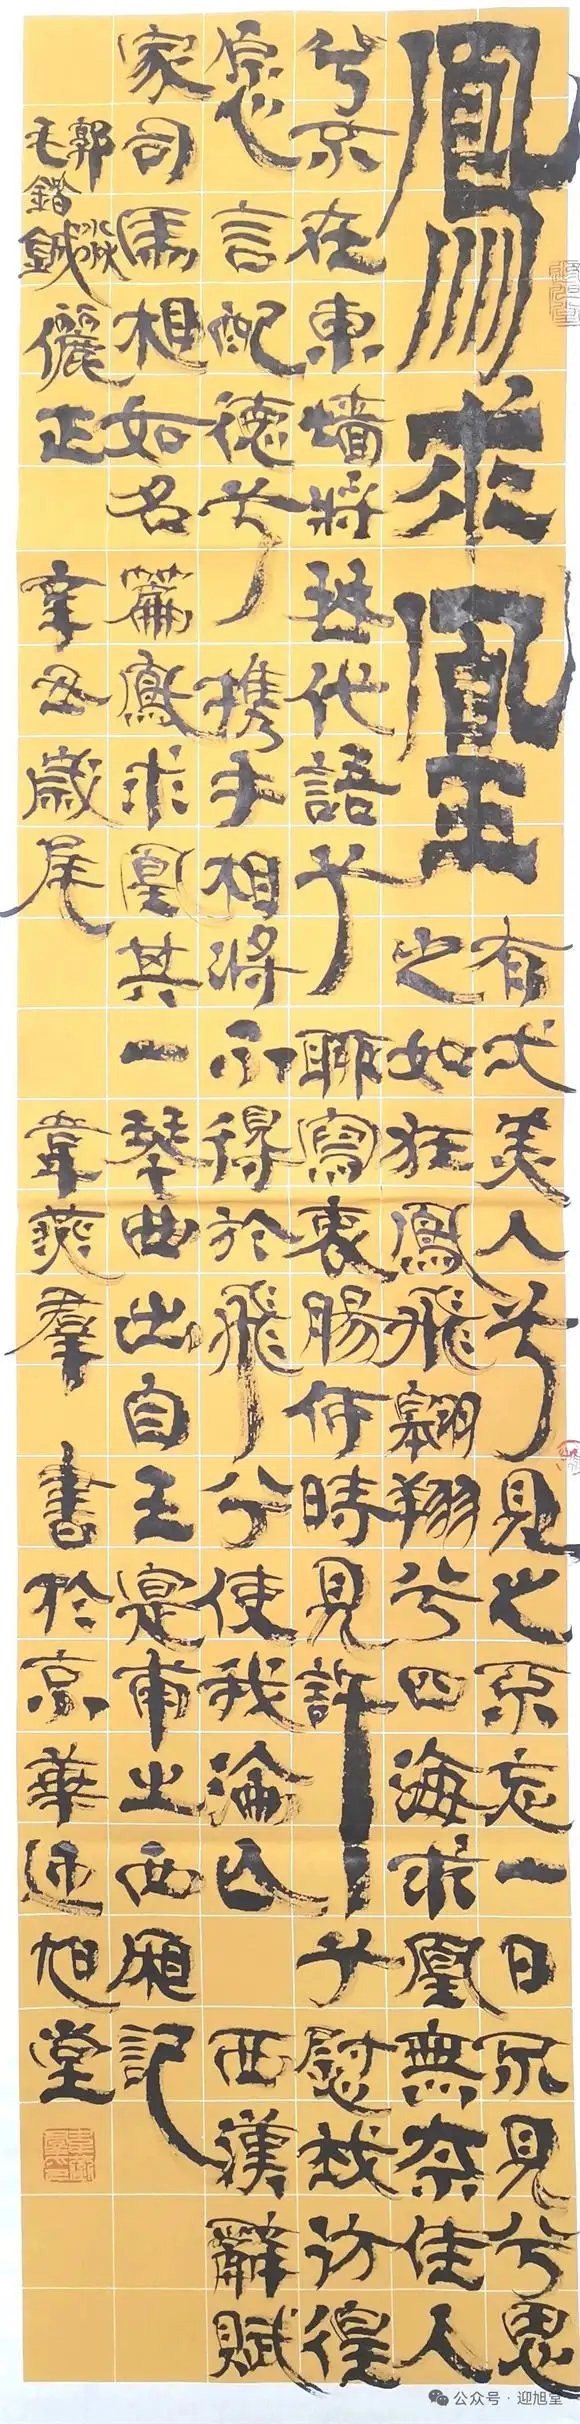 鳳求凰
有弋美人兮見之不忘一日不見兮思
之如狂鳳飛翱翔兮四海求凰無奈佳人
兮不在東墻將琴代語兮聊寫衷腸何時見許兮慰我彷徨
愿言配德兮携手相將不得於飛兮使我淪亡西漢辭賦
家司馬相如名篇鳳求凰其一琴曲出自王寔甫之西廂記
郭
毛
儷正辛丑歲尾韋燕羣書於京華迎旭堂
公众号·迎旭堂